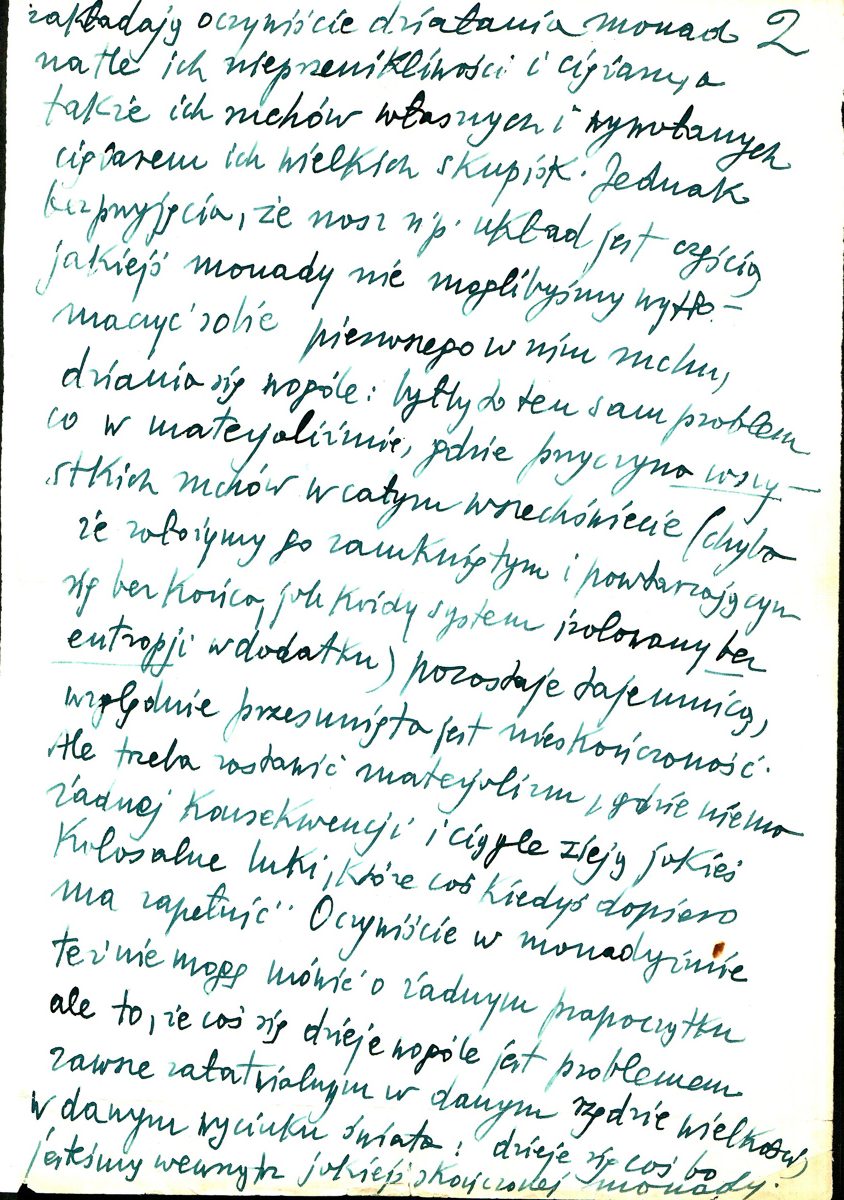 zakładają oczywiście działania monad 2
na tle ich nieprzenikliwości i ciężaru, a
także ich ruchów własnych i wywołanych
ciężarem ich wielkich skupisk. Jednak
bez przyjęcia, że nasz np. układ jest częścią
jakiejś monady nie moglibyśmy wytło-
maczyć sobie pierwszego w nim ruchu,
dziania się wogóle: byłby to ten sam problem
co w materjaliźmie, gdzie przyczyna wszy-
stkich ruchów w całym wszechświecie (chyba
że założymy go zamkniętym i powtarzającym
się bez końca, jak każdy system izolowany bez
entropji w dodatku) pozostaje tajemnicą,
względnie przesunięta jest w nieskończoność.
Ale trzeba zostawić materjalizm, gdzie niema
żadnej konsekwencji i ciągle zieją jakieś
kolosalne luki, które coś kiedyś dopiero
ma zapełnić. Oczywiście w monadyźmie
też nie mogę mówić o żadnym prapoczątku
ale to, że coś się dzieje wogóle jest problemem
zawsze załatwialnym w danym rzędzie wielkości,
w danym wycinku świata: dzieje się coś bo
jesteśmy wewnątrz jakiejś skończonej monady.